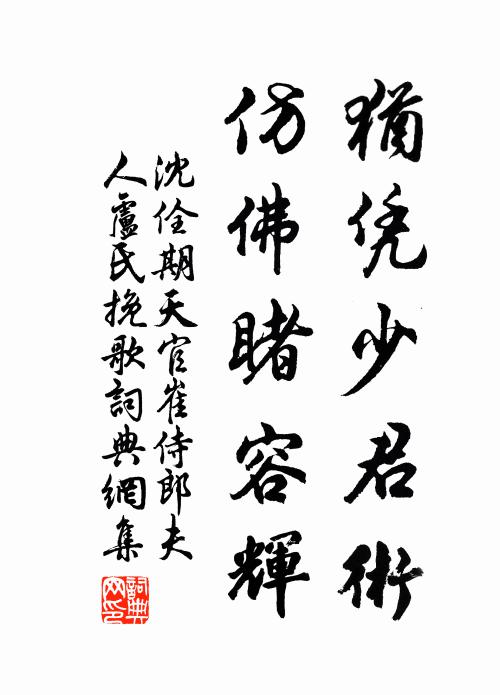 猶凭少君術
仿佛睹容輝
沈佺期天官崔侍郎夫
人盧氏挽歌詞典網集
詞典网印